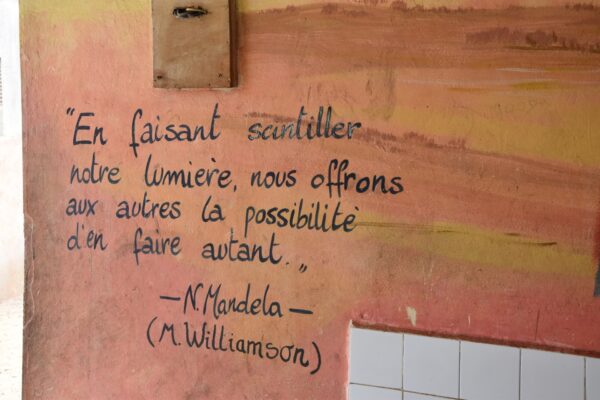 "En faisant scintiller
notre lumière, nous offrons
aux autres la possibilité
d'en faire autant."
— N. Mandela —
(M. Williamson)